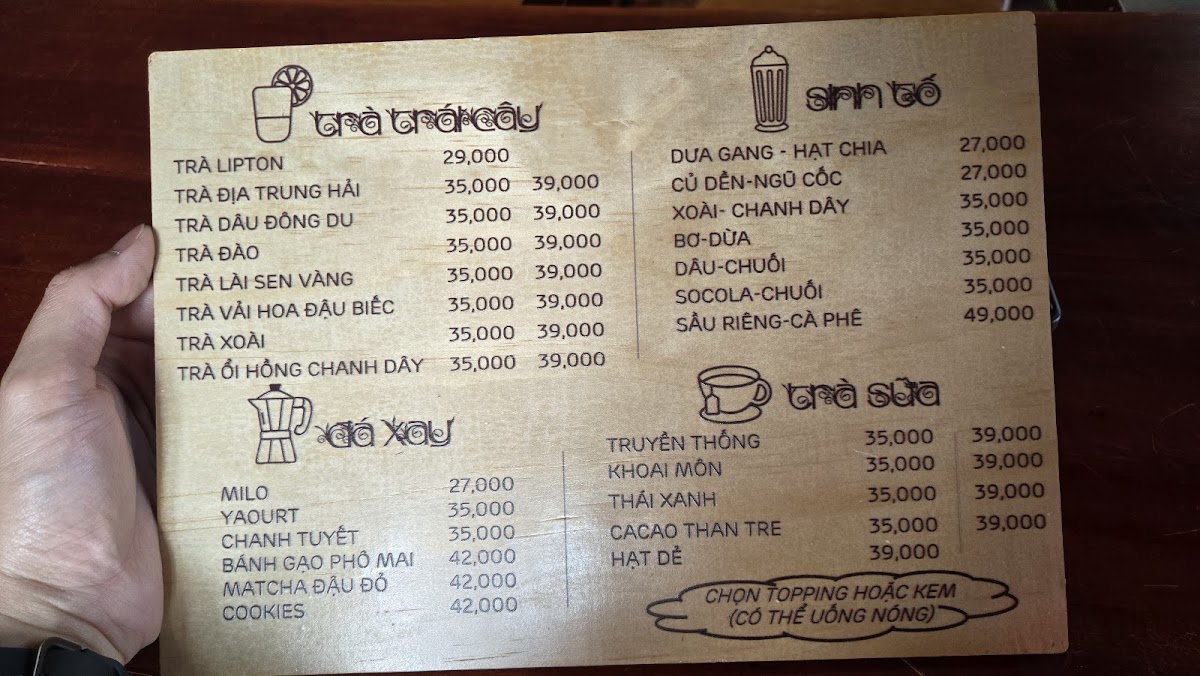 trà trái cây
TRÀ LIPTON 29,000
TRÀ ĐỊA TRUNG HẢI 35,000 39,000
TRÀ DÂU ĐÔNG DU 35,000 39,000
TRÀ ĐÀO 35,000 39,000
TRÀ LÀI SEN VÀNG 35,000 39,000
TRÀ VẢI HOA ĐẬU BIẾC 35,000 39,000
TRÀ XOÀI 35,000 39,000
TRÀ ỔI HỒNG CHANH DÂY 35,000 39,000
đá xay
MILO 27,000
YAOURT 35,000
CHANH TUYẾT 35,000
BÁNH GẠO PHÔ MAI 42,000
MATCHA ĐẬU ĐỎ 42,000
COOKIES 42,000
sinh tố
DƯA GANG - HẠT CHIA 27,000
CỦ DỀN-NGŨ CỐC 27,000
XOÀI- CHANH DÂY 35,000
BƠ-DỪA 35,000
DÂU-CHUỐI 35,000
SOCOLA-CHUỐI 35,000
SẦU RIÊNG-CÀ PHÊ 49,000
trà sữa
TRUYỀN THỐNG 35,000 39,000
KHOAI MÔN 35,000 39,000
THÁI XANH 35,000 39,000
CACAO THAN TRE 35,000 39,000
HẠT DẺ 39,000
CHỌN TOPPING HOẶC KEM
(CÓ THỂ UỐNG NÓNG)